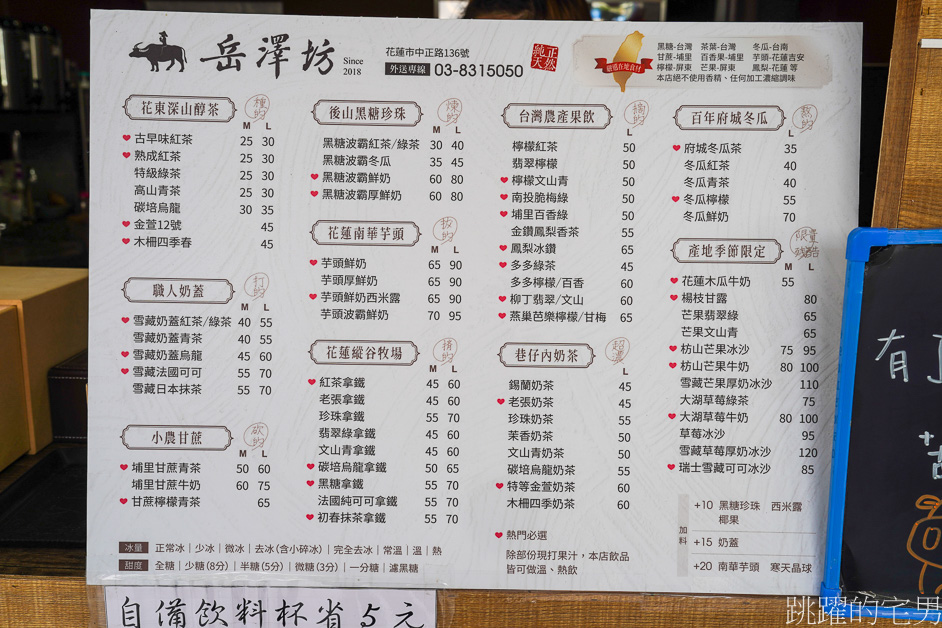 岳澤坊 Since 2018
花蓮市中正路136號
外送專線 03-8315050
純正天然
嚴選在地食材
黑糖-台灣 茶葉-台灣 冬瓜-台南
甘蔗-埔里 百香果-埔里 芋頭-花蓮吉安
檸檬-屏東 芒果-屏東 鳳梨-花蓮 等
本店絕不使用香精、任何加工濃縮調味
花東深山醇茶
種的
M L
古早味紅茶 25 30
熟成紅茶 25 30
特級綠茶 25 30
高山青茶 25 30
碳培烏龍 30 35
金萱12號 45
木柵四季春 45
職人奶蓋
打的
M L
雪藏奶蓋紅茶/綠茶 40 55
雪藏奶蓋青茶 40 55
雪藏奶蓋烏龍 45 60
雪藏法國可可 55 70
雪藏日本抹茶 55 70
小農甘蔗
砍的
M L
埔里甘蔗青茶 50 60
埔里甘蔗牛奶 60 75
甘蔗檸檬青茶 65
後山黑糖珍珠
煉的
M L
黑糖波霸紅茶/綠茶 30 40
黑糖波霸冬瓜 35 45
黑糖波霸鮮奶 60 80
黑糖波霸厚鮮奶 60 80
花蓮南華芋頭
拔的
M L
芋頭鮮奶 65 90
芋頭厚鮮奶 65 90
芋頭鮮奶西米露 65 90
芋頭波霸鮮奶 70 95
花蓮縱谷牧場
擠的
M L
紅茶拿鐵 45 60
老張拿鐵 45 60
珍珠拿鐵 55 70
翡翠綠拿鐵 45 60
文山青拿鐵 45 60
碳培烏龍拿鐵 50 65
黑糖拿鐵 55 70
法國純可可拿鐵 55 70
初春抹茶拿鐵 55 70
台灣農產果飲
摘的
L
檸檬紅茶 50
翡翠檸檬 50
檸檬文山青 50
南投脆梅綠 50
埔里百香綠 50
金鑽鳳梨香茶 55
鳳梨冰鑽 65
多多綠茶 45
多多檸檬/百香 60
柳丁翡翠/文山 60
燕巢芭樂檸檬/甘梅 65
巷仔內奶茶
超濃
L
錫蘭奶茶 45
老張奶茶 45
珍珠奶茶 55
茉香奶茶 50
文山青奶茶 50
碳培烏龍奶茶 55
特等金萱奶茶 60
木柵四季奶茶 60
熱門必選
除部份現打果汁，本店飲品
皆可做溫、熱飲
百年府城冬瓜
熬的
L
府城冬瓜茶 35
冬瓜紅茶 40
冬瓜青茶 40
冬瓜檸檬 55
冬瓜鮮奶 70
產地季節限定
M L
花蓮木瓜牛奶 55
楊枝甘露 80
芒果翡翠綠 65
芒果文山青 65
枋山芒果冰沙 75 95
枋山芒果牛奶 80 100
雪藏芒果厚奶冰沙 110
大湖草莓綠茶 75
大湖草莓牛奶 80 100
草莓冰沙 95
雪藏草莓厚奶冰沙 120
瑞士雪藏可可冰沙 85
加料
+10 黑糖珍珠 西米露
椰果
+15 奶蓋
+20 南華芋頭 寒天晶球
冰量 正常冰｜少冰｜微冰｜去冰(含小碎冰)｜完全去冰｜常溫｜溫｜熱
甜度 全糖｜少糖(8分)｜半糖(5分)｜微糖(3分)｜一分糖｜濾黑糖
自備飲料杯省5元
有
跳躍的宅男